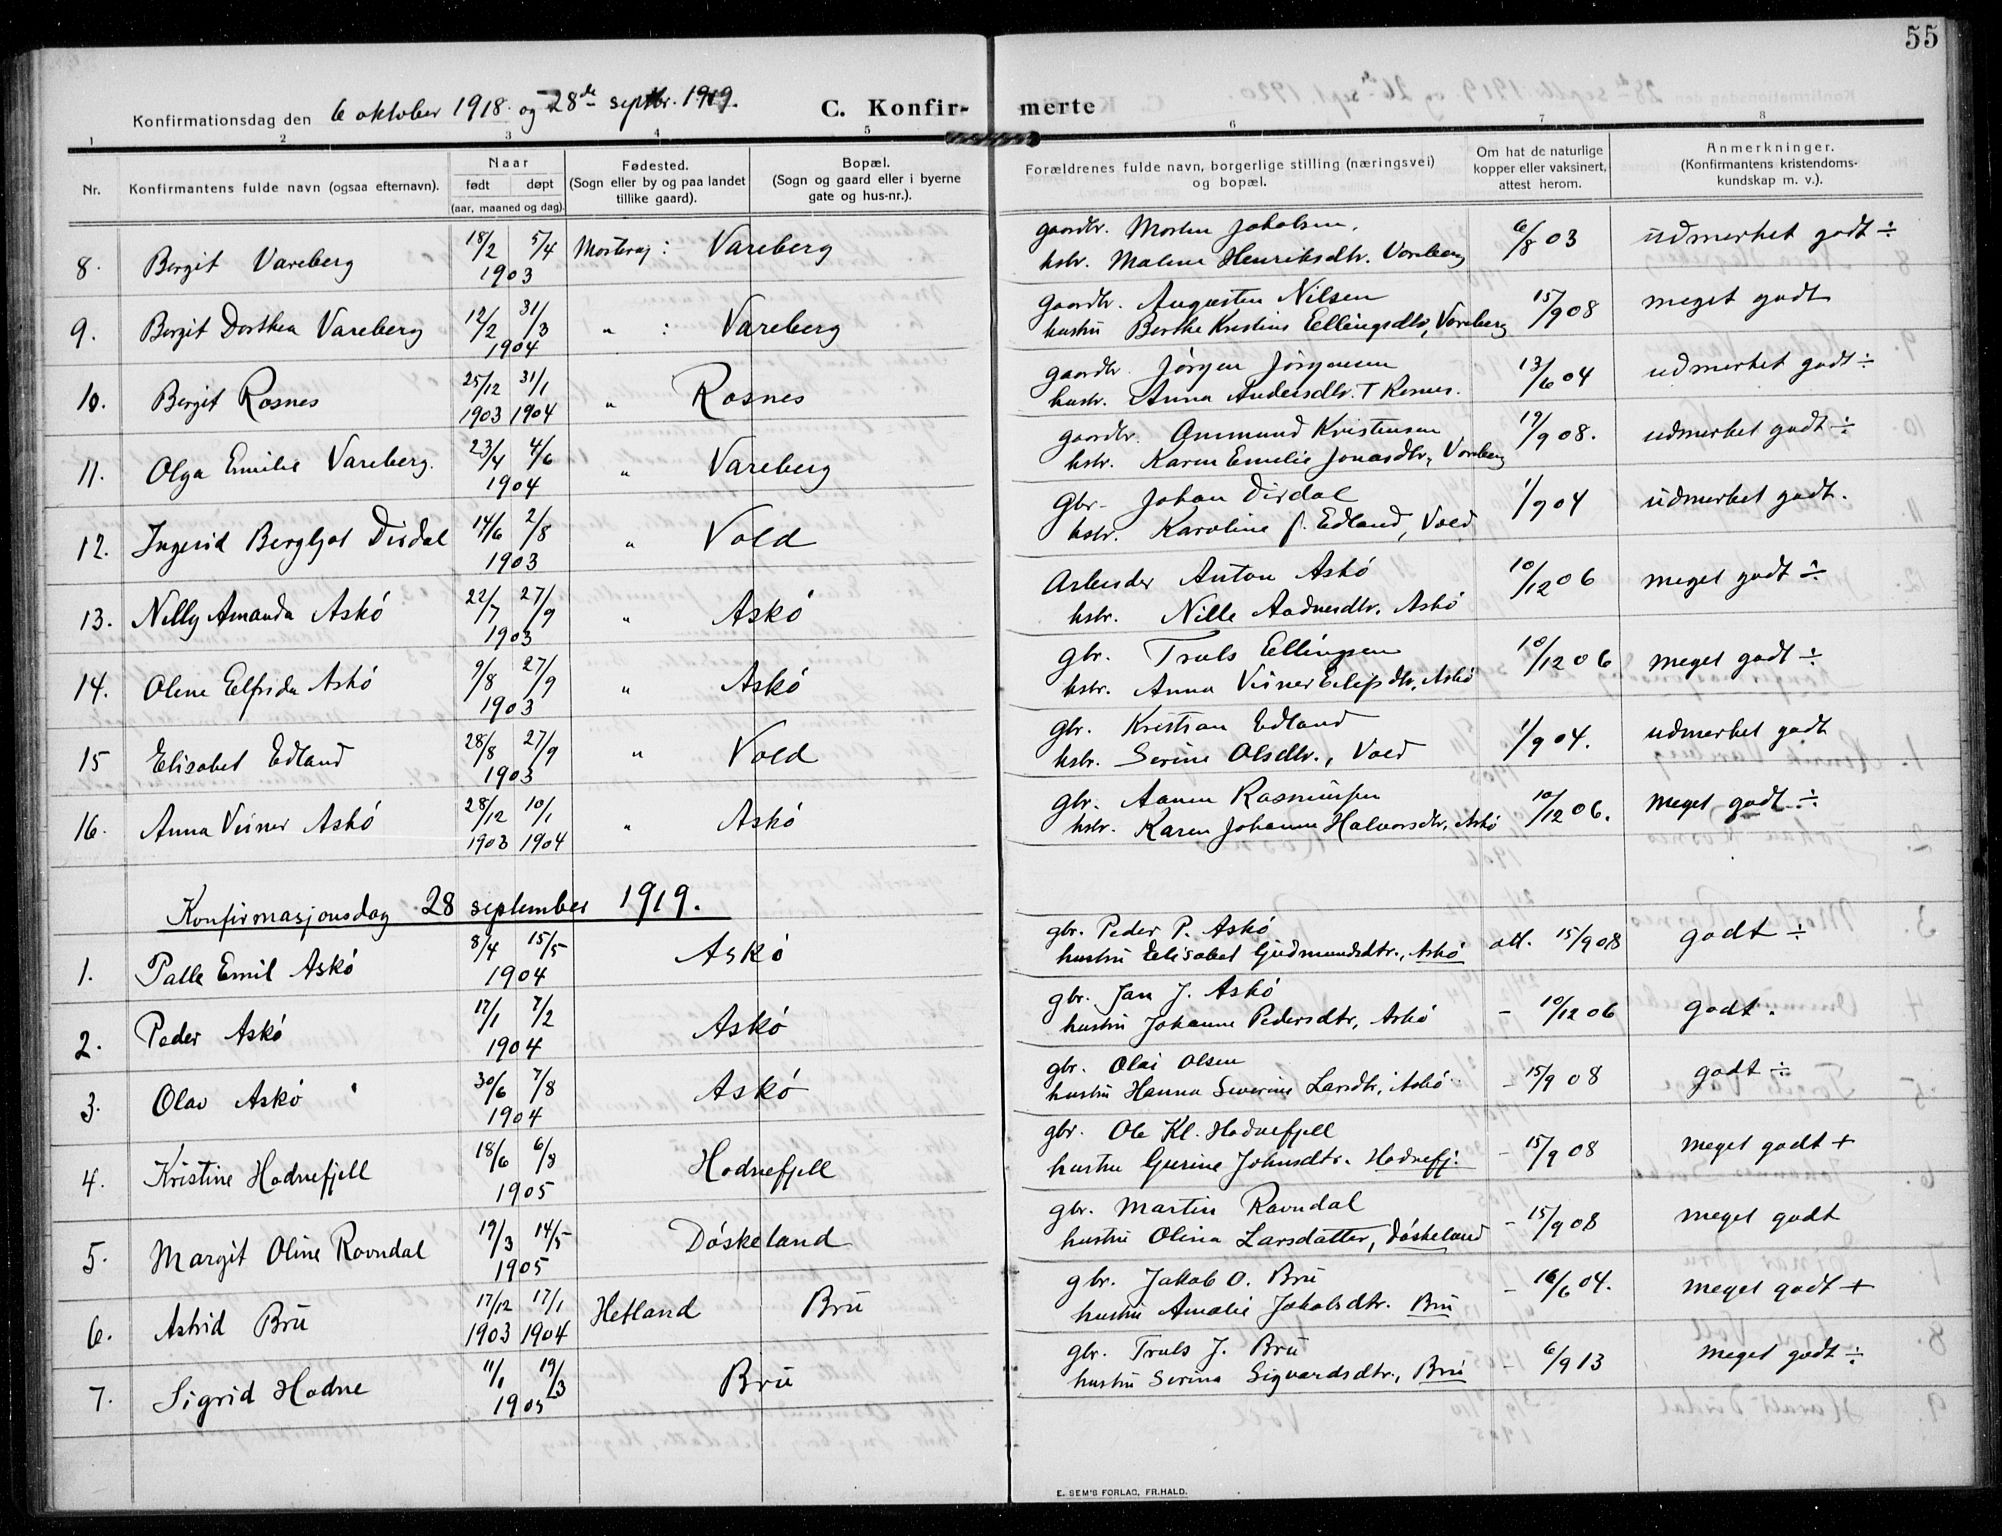 55
Konfirmationsdag den 6 oktober 1918 og 28de septbr. 1919. C. Konfir- merte
1 2 3 4 5 6 7 8
Nr. Konfirmantens fulde navn (ogsaa efternavn). Naar født døpt (aar, maaned og dag). Fødested. (Sogn eller by og paa landet tillike gaard). Bopæl. (Sogn og gaard eller i byerne gate og hus-nr.). Forældrenes fulde navn, borgerlige stilling (næringsvei) og bopæl. Om hat de naturlige kopper eller vaksinert, attest herom. Anmerkninger. (Konfirmantens kristendoms-kundskap m. v.).
8. Bergit Vareberg 18/2 5/4 1903 : Vareberg gaardbr. Morten Jakobsen. 6/8 03 udmerket godt ÷
hstr. Malene Henriksdtr. Vareberg
9. Bergit Dorthea Vareberg 12/2 31/3 1904 " : Vareberg Gaardbr. Augusten Nilsen 15/9 08 meget godt
hustru Berthe Kristine Ellingsdtr, Vareberg
10. Bergit Rosnes 25/12 1903 31/1 1904 " Rosnes gaardbr. Jörgen Jörgensen 13/6 04 udmerket godt ÷
hustr. Anna Andersdtr.
11. Olga Emilie Vareberg. 23/4 4/6 1904 " Vareberg gaardbr. Ommund Kristensen 19/9 08. udmerket godt ÷
hstr. Karen Emelie Jonasdtr, Vareberg
12. Ingerid Bergljot Dirdal 14/6 2/8 1903 " Vold Gbr. Johan Dirdal 1/9 04 udmerket godt.
hstr. Karoline f. Edland, Vold
13. Nelly Amanda Askö 22/7 27/9 1903 " Askö Arbeider Anton Askö 10/12 06 meget godt ÷
hstr. Nille Aadnesdtr. Askö
14. Oline Elfrida Askö 9/8 27/9 1903 " Askö gbr. Truls Ellingsen 10/12 06 meget godt ÷
hstr. Anna, Askö
15 Elisabet Edland 28/8 27/9 1903 " Vold gbr. Kristian Edland 1/9 04. udmerket godt
hstr. Serine Olsdtr., Vold
16. Anna Viner Askö 28/12 1903 10/1 1904 " Askö gbr. Rasmussen 10/12 06. meget godt ÷
hstr. Karen Johanne Halvorsdtr, Askö
Konfirmasjonsdag 28 september 1919.
1. Palle Emil Askö 8/4 15/5 1904 Askö gbr. Peder P. Askö att. 15/9 08 godt ÷
hustru Elisabet Gudmundsdtr., Askö
2. Peder Askö 17/1 7/2 1904 Askö gbr. Jan J. Askö – 10/12 06 godt.
hustru Johanne Pedersdtr, Askö
3. Olav Askö 30/6 7/8 1904 Askö gbr. Olai Olsen – 15/9 08 godt ÷
hustru Hanna Severine Larsdtr, Askö
4. Kristine Hodnefjell 18/6 6/8 1905 Hodnefjell gbr. Ole Kl. Hodnefjell – 15/9 08 meget godt +
hustru Gurine Johnsdtr. Hodnefj.
5. Margit Oline Ravndal 19/3 14/5 1905 Döskeland gbr. Martin Ravndal – 15/9 08 meget godt
hustru Olina Larsdatter, Döskeland
6. Astrid Bru 17/12 1903 17/1 1904 Hetland Bru gbr. Jakob O. Bru – 16/6 04. meget godt +
hustru Amalie Jakobsdtr. Bru
7. Sigrid Hodne 11/1 19/3 1905 Bru gbr. Truls J. Bru – 6/9 13 meget godt ÷
hustru Serina Sigvardsdtr., Bru
E. SEM'S FORLAG, FR.HALD.